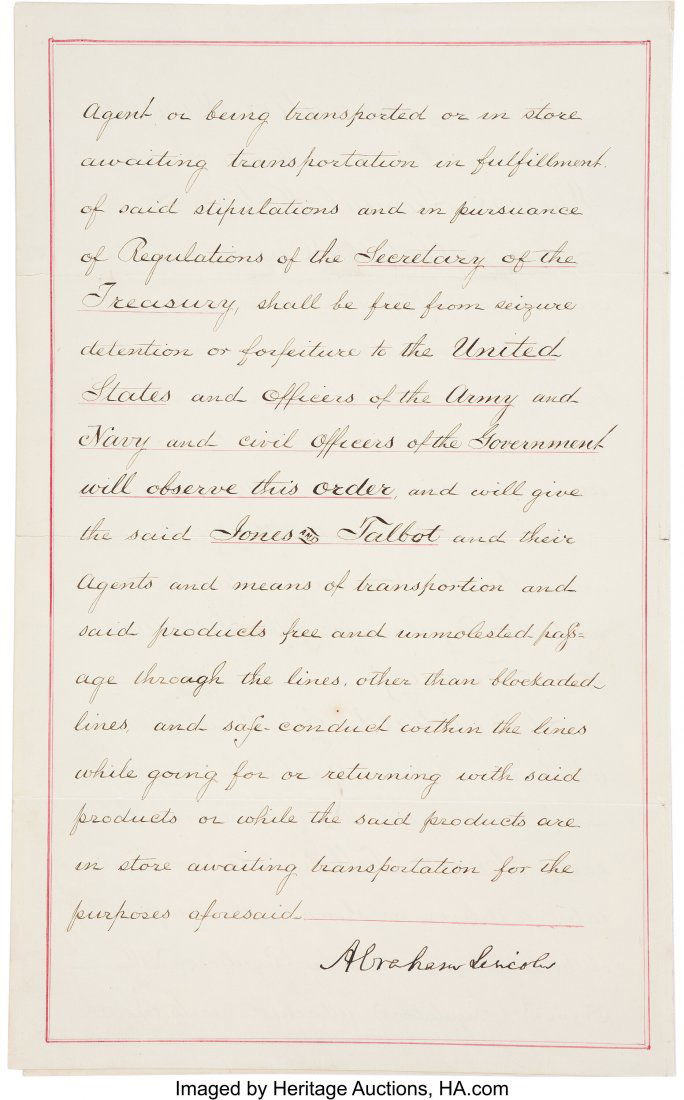 Agent or being transported or in store
awaiting transportation in fulfillment
of said stipulations and in pursuance
of Regulations of the Secretary of the
Treasury, shall be free from seizure
detention or forfeiture to the United
States and officers of the Army and
Navy and civil officers of the Government
will observe this order, and will give
the said Jones and Talbot and their
Agents and means of transportion and
said products free and unmolested pass=
age through the lines, other than blockaded
lines, and safe conduct within the lines
while going for or returning with said
products or while the said products are
in store awaiting transportation for the
purposes aforesaid
Abraham Lincoln
Imaged by Heritage Auctions, HA.com